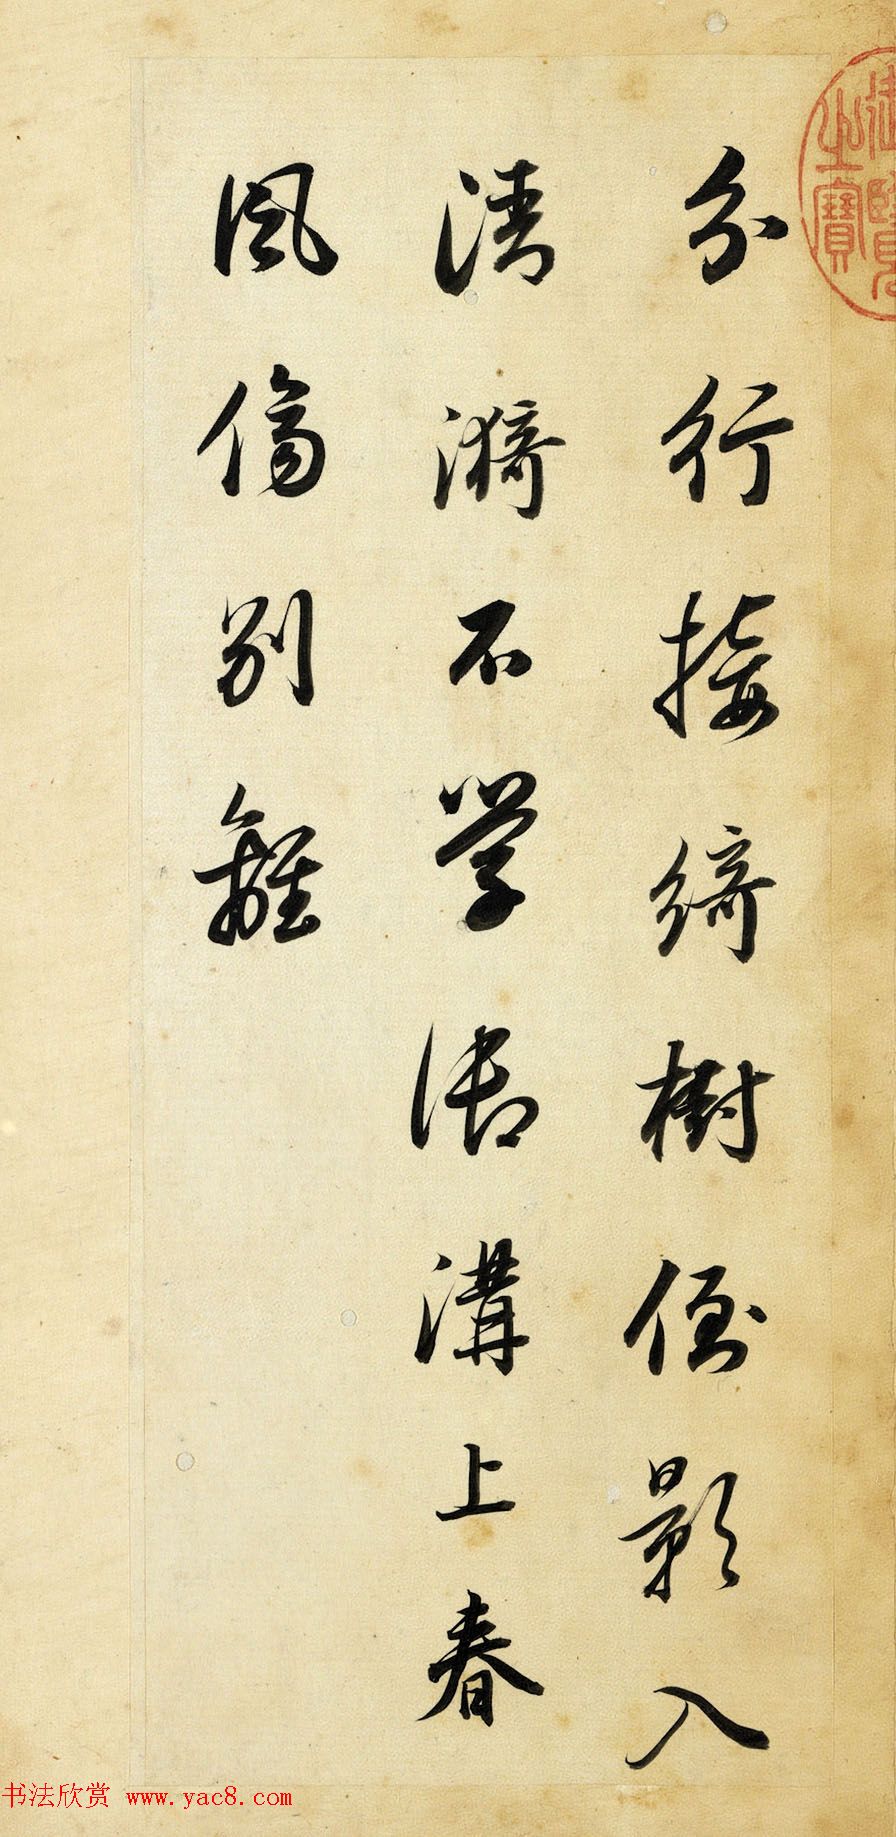 分行接綺樹倒影入
清漪不學御溝上春
風傷別離
御覽之寶
书法欣赏 www.yac8.com